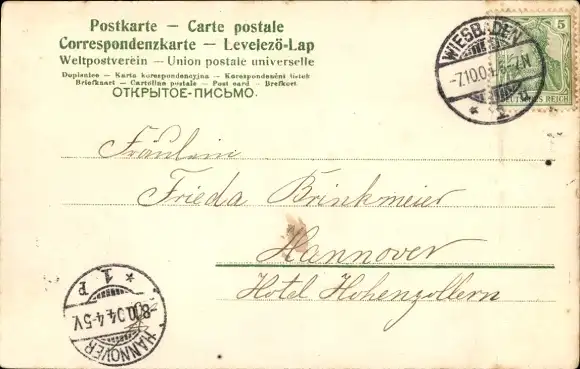 Postkarte — Carte postale
Correspondenzkarte — Levelező-Lap
Weltpostverein — Union postale universelle
Dopisnice — Karta korespondencyjna — Korespondenční lístek
Briefkaart — Cartolina postale — Post card — Brefkort
ОТКРЫТОЕ-ПИСЬМО.
WIESBADEN
5
DEUTSCHES REICH
* 1
Fräulein
Frieda Brinkmeier
Hannover
Hotel Hohenzollern
* 1. P
8.10.04.4-5V.
HANNOVER